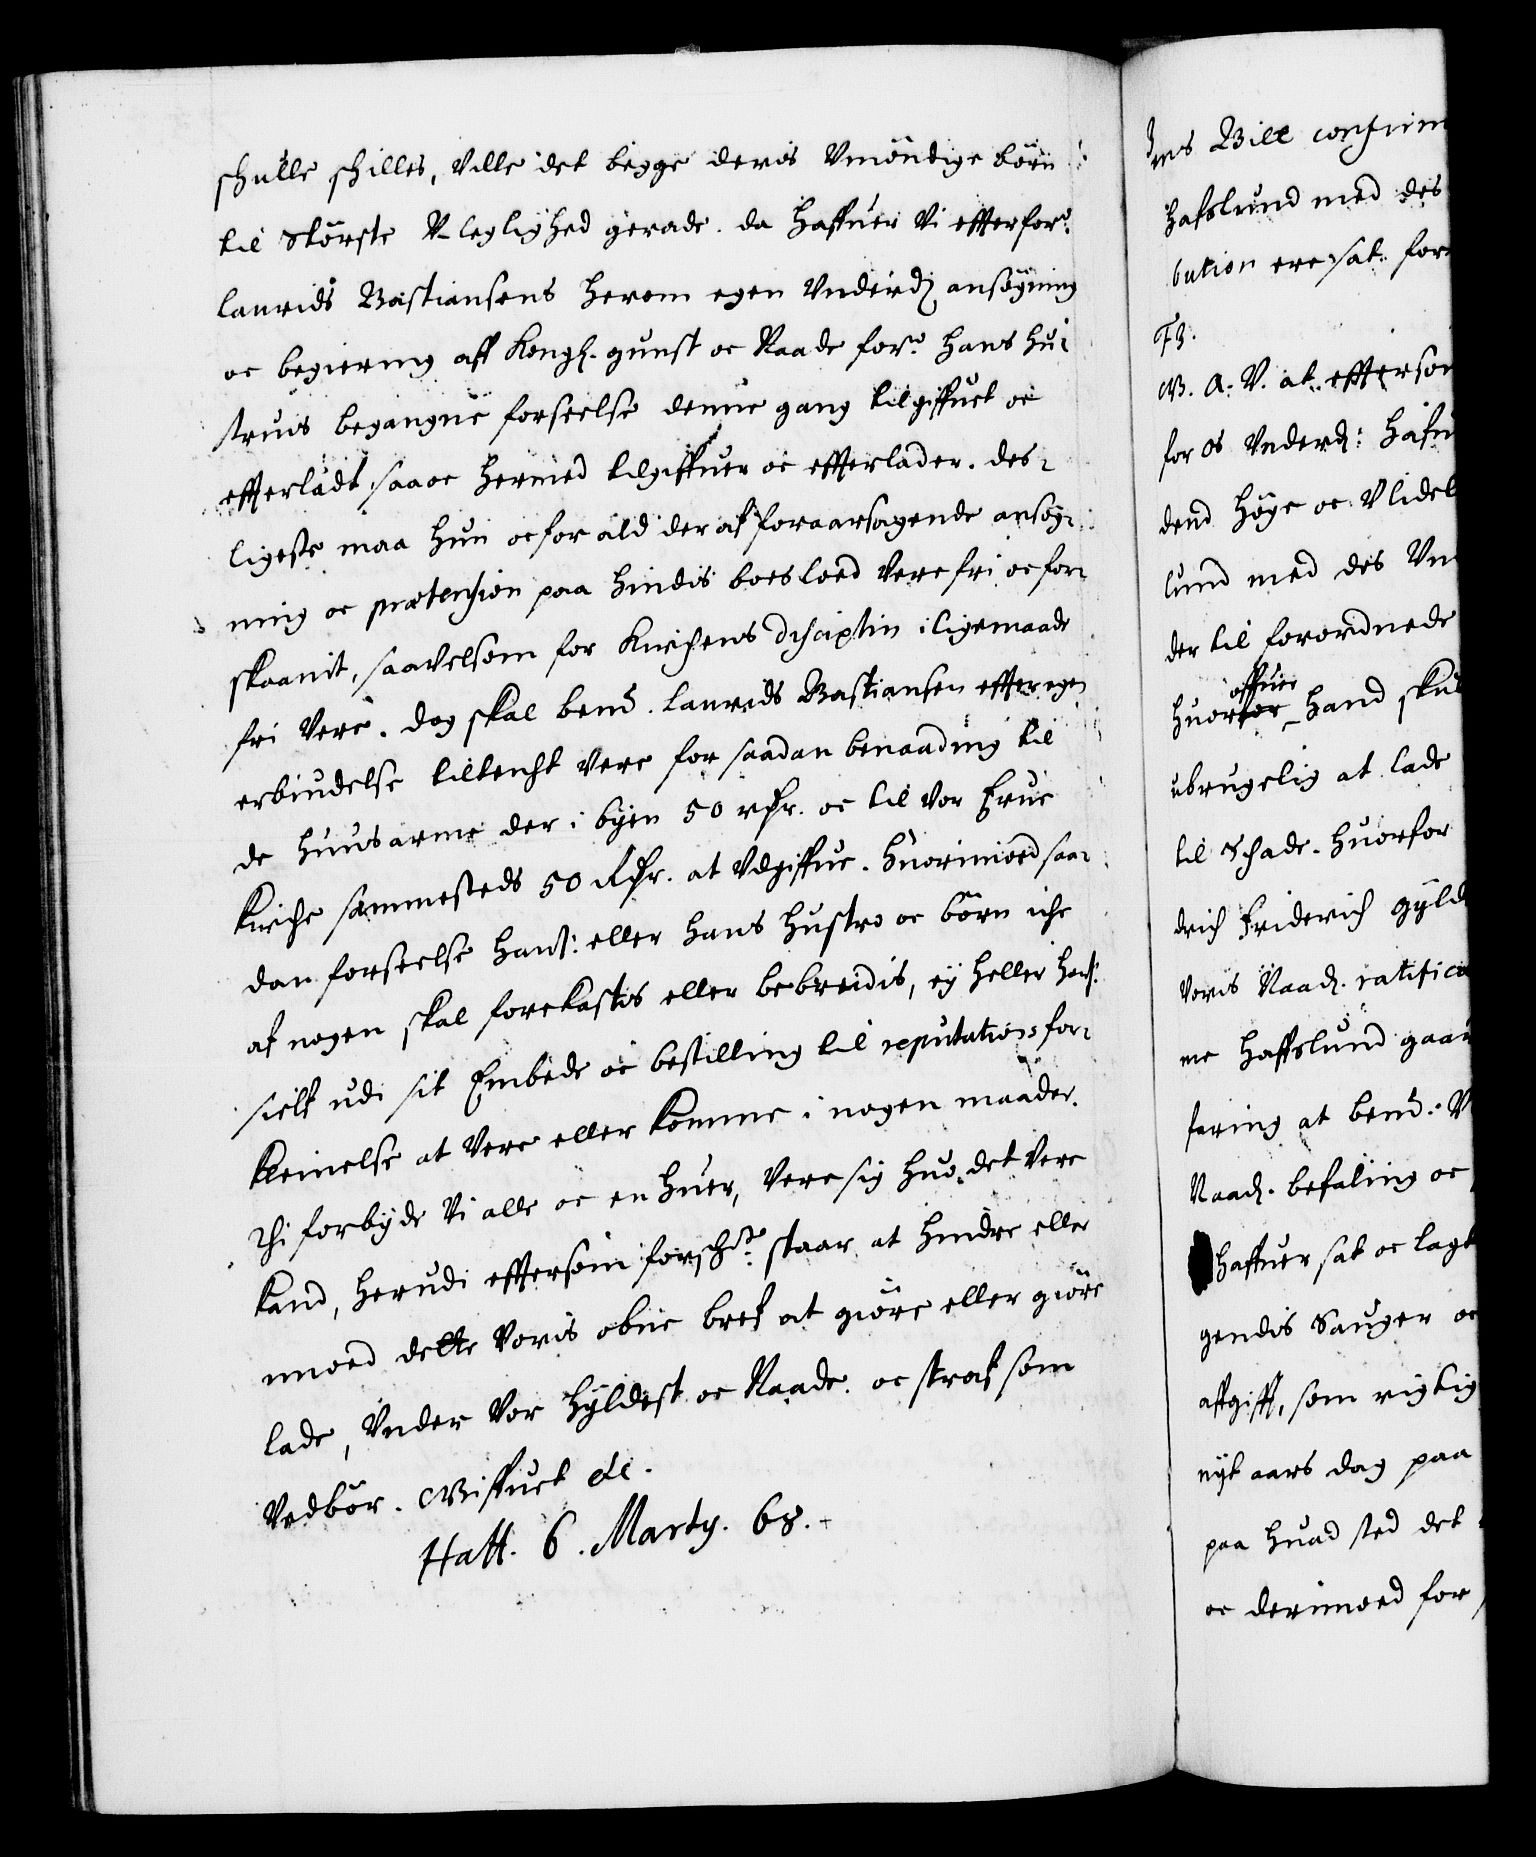 schulle schilles, Ville det begge deris Vmöndige börn
til Störste V-leglighed gerade. da haffuer Vi effter forne
Laurids Bastiansens herom egen Vnderd: ansögning
oc begiering aff Kongl. gunst oc Naade forne hans Hu-
struis begangne forseelse denne gang tilgiffuet oc
efferladt, saa oc hermed tilgiffuer oc effterlader. des-
ligeste maa hun oc for ald der af foraarsagende ansög-
ning oc prætension paa hindis boesloed Vere fri oc for-
skaanit, saavelsom for Kirchens disciplin i ligemaade
fri Vere. dog skal bemt. Laurids Bastiansen effter egen
erbiudelse tiltencht Vere for saadan benaading til
de huusarme der i byen 50 rdr. oc til Vor Frue
Kirche sammesteds 50 Rdr. at Udgiffue. huorimoed saa-
dan forseelse hans: eller hans hustro oc börn iche
af nogen skal forekastis eller bebreidis, ej heller hans:
sielf udi sit Embede oc bestilling til reputations for-
kleinelse at Vere eller komme i nogen maader.
Thi forbyde Vi alle oc en huer, Vere sig huo det Vere
kand, herudi efftersom forschte. staar at hindre eller
imoed dette Voris obne bref at giöre eller giöre
lade, Vnder Vor Hyldest oc Naade. oc straf som
Vedbör. Giffuet etc.
Haff. 6. Marty. 68.
Jens Bille confirm
Hafslund med des
bution ere sat for
F3.
G. A. V. at effterson
for os Vnderd: hafu
dend höge oc Vlidel
lund med des Vn
der til forordnede
offuer
huorfor hand sku
ubrugelig at lade
til Schade. huorfor
drich Friderich Gyld
Voris Naad. ratifica
me Haffslund gaar
faring at bemt. V
Naad. befaling oc
haffuer sat oc lagt
gendis Sauger oc
affgifft, som rigtig
nyt aars dag paa
paa huad sted det
oc derimoed for